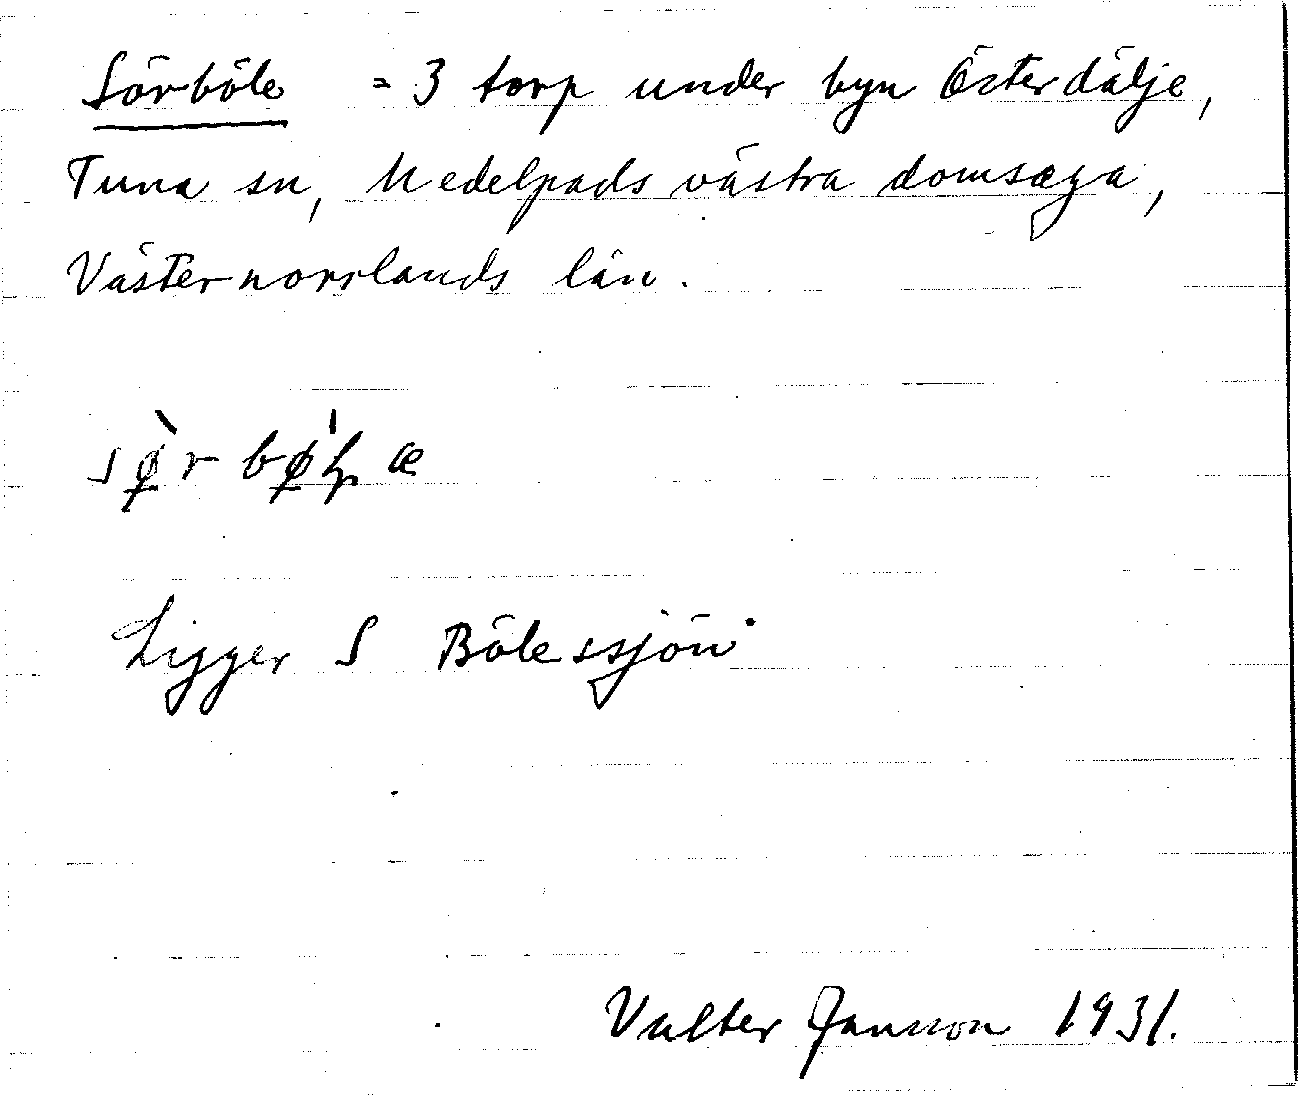 Sörböle = 3 torp under byn Österdälje,
Tuna sn, Medelpads västra domsaga,
Västernorrlands län.
sø̀rbø̍ɬæ
Ligger S Bölessjön
Valter Jansson 1931.